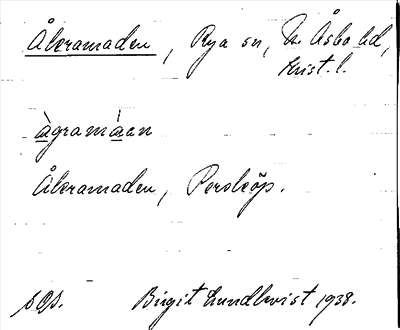 Åkramaden, Rya sn, N. Åsbo hd,
Krist. l.
àgramáen
Åkramaden, Perstorp.
sOs. Birgit Lundkvist 1938.